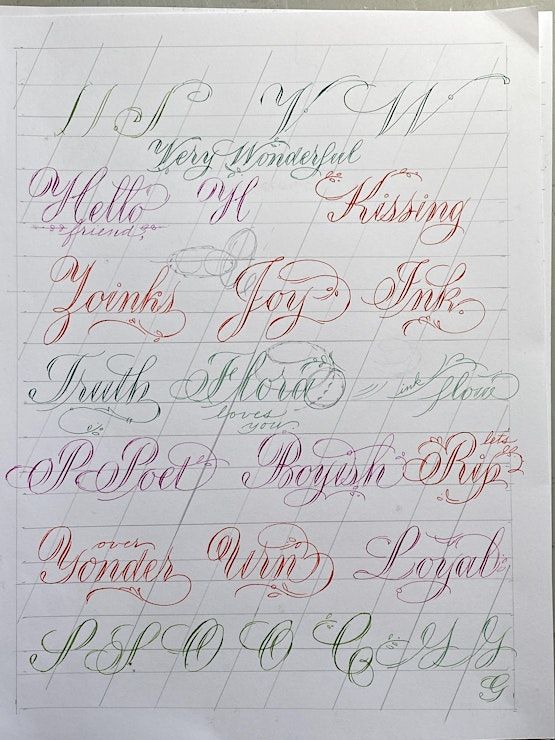 V W
Very Wonderful
Hello H Kissing
friend,
Zoinks Joy Ink
Truth Flora ink flow
loves
you
P Poet Boyish Rip
lets
over
Yonder Urn Loyal
S S O O C Y Y
G